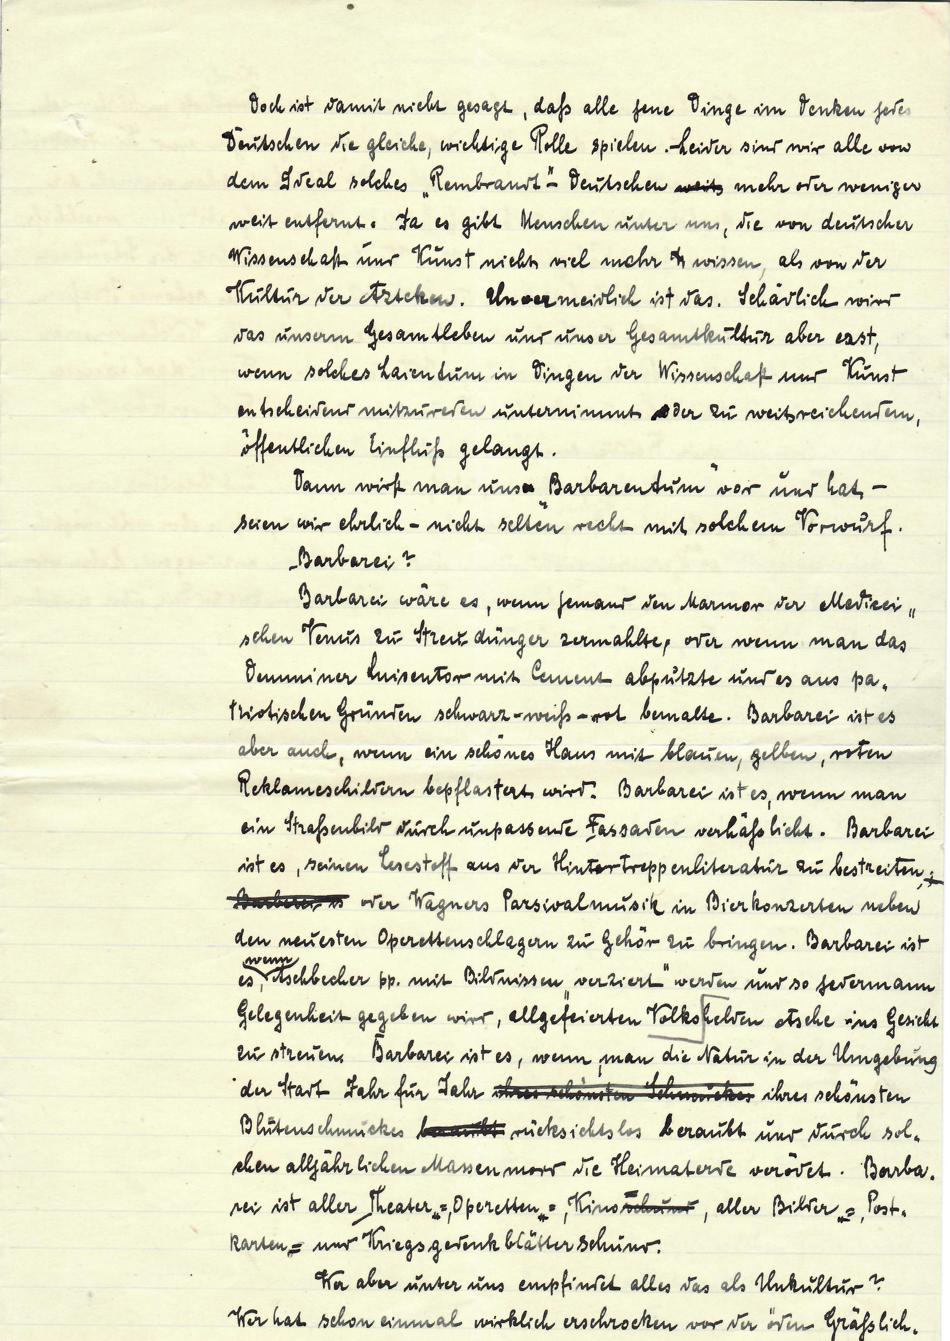 Doch ist damit nicht gesagt, daß alle jene Dinge im Denken jedes
Deutschen die gleiche, wichtige Rolle spielen. Leider sind wir alle von
dem Ideal solches „Rembrandt"-Deutschen weits mehr oder weniger
weit entfernt. Ja es gibt Menschen unter uns, die von deutscher
Wissenschaft und Kunst nicht viel mehr wissen, als von der
Kultur der Azteken. Unvermeidlich ist das. Schädlich wird
das unserm Gesamtleben und unser Gesamtkultur aber erst,
wenn solches Laientum in Dingen der Wissenschaft und Kunst
entscheidend mitzureden unternimmt oder zu weitreichendem,
öffentlichen Einfluß gelangt.
Dann wirft man uns „Barbarentum" vor und hat -
seien wir ehrlich - nicht selten recht mit solchem Vorwurf.
Barbarei?
Barbarei wäre es, wenn jemand den Marmor der Medicei„
schen Venus zu Streudünger zermahlte, oder wenn man das
Demminer Luisentor mit Cement abputzte und es aus pa„
triotischen Gründen schwarz-weiß-rot bemalte. Barbarei ist es
aber auch, wenn ein schönes Haus mit blauen, gelben, roten
Reklameschildern bepflastert wird. Barbarei ist es, wenn man
ein Straßenbild durch unpassende Fassaden verhäßlicht. Barbarei
ist es, seinen Lesestoff aus der Hintertreppenliteratur zu bestreiten,
Barbarei is oder Wagners Parsivalmusik in Bierkonzerten neben
den neuesten Operettenschlagern zu Gehör zu bringen. Barbarei ist
es, wenn Aschbecher pp. mit Bildnissen „verziert" werden und so jedermann
Gelegenheit gegeben wird, allgefeierten Volkshelden Asche ins Gesicht
zu streuen. Barbarei ist es, wenn man die Natur in der Umgebung
der Stadt Jahr für Jahr ihres schönsten Schmuckes ihres schönsten
Blütenschmuckes beraubt rücksichtslos beraubt und durch sol„
chen alljährlichen Massenmord die Heimaterde verödet. Barba„
rei ist aller Theater„=, Operetten„=, Kinoschund, aller Bilder„=, Post„
karten„= und Kriegsgedenkblätterschund.
Wer aber unter uns empfindet alles das als Unkultur?
Wer hat schon einmal wirklich erschrocken vor der öden Gräßlich„